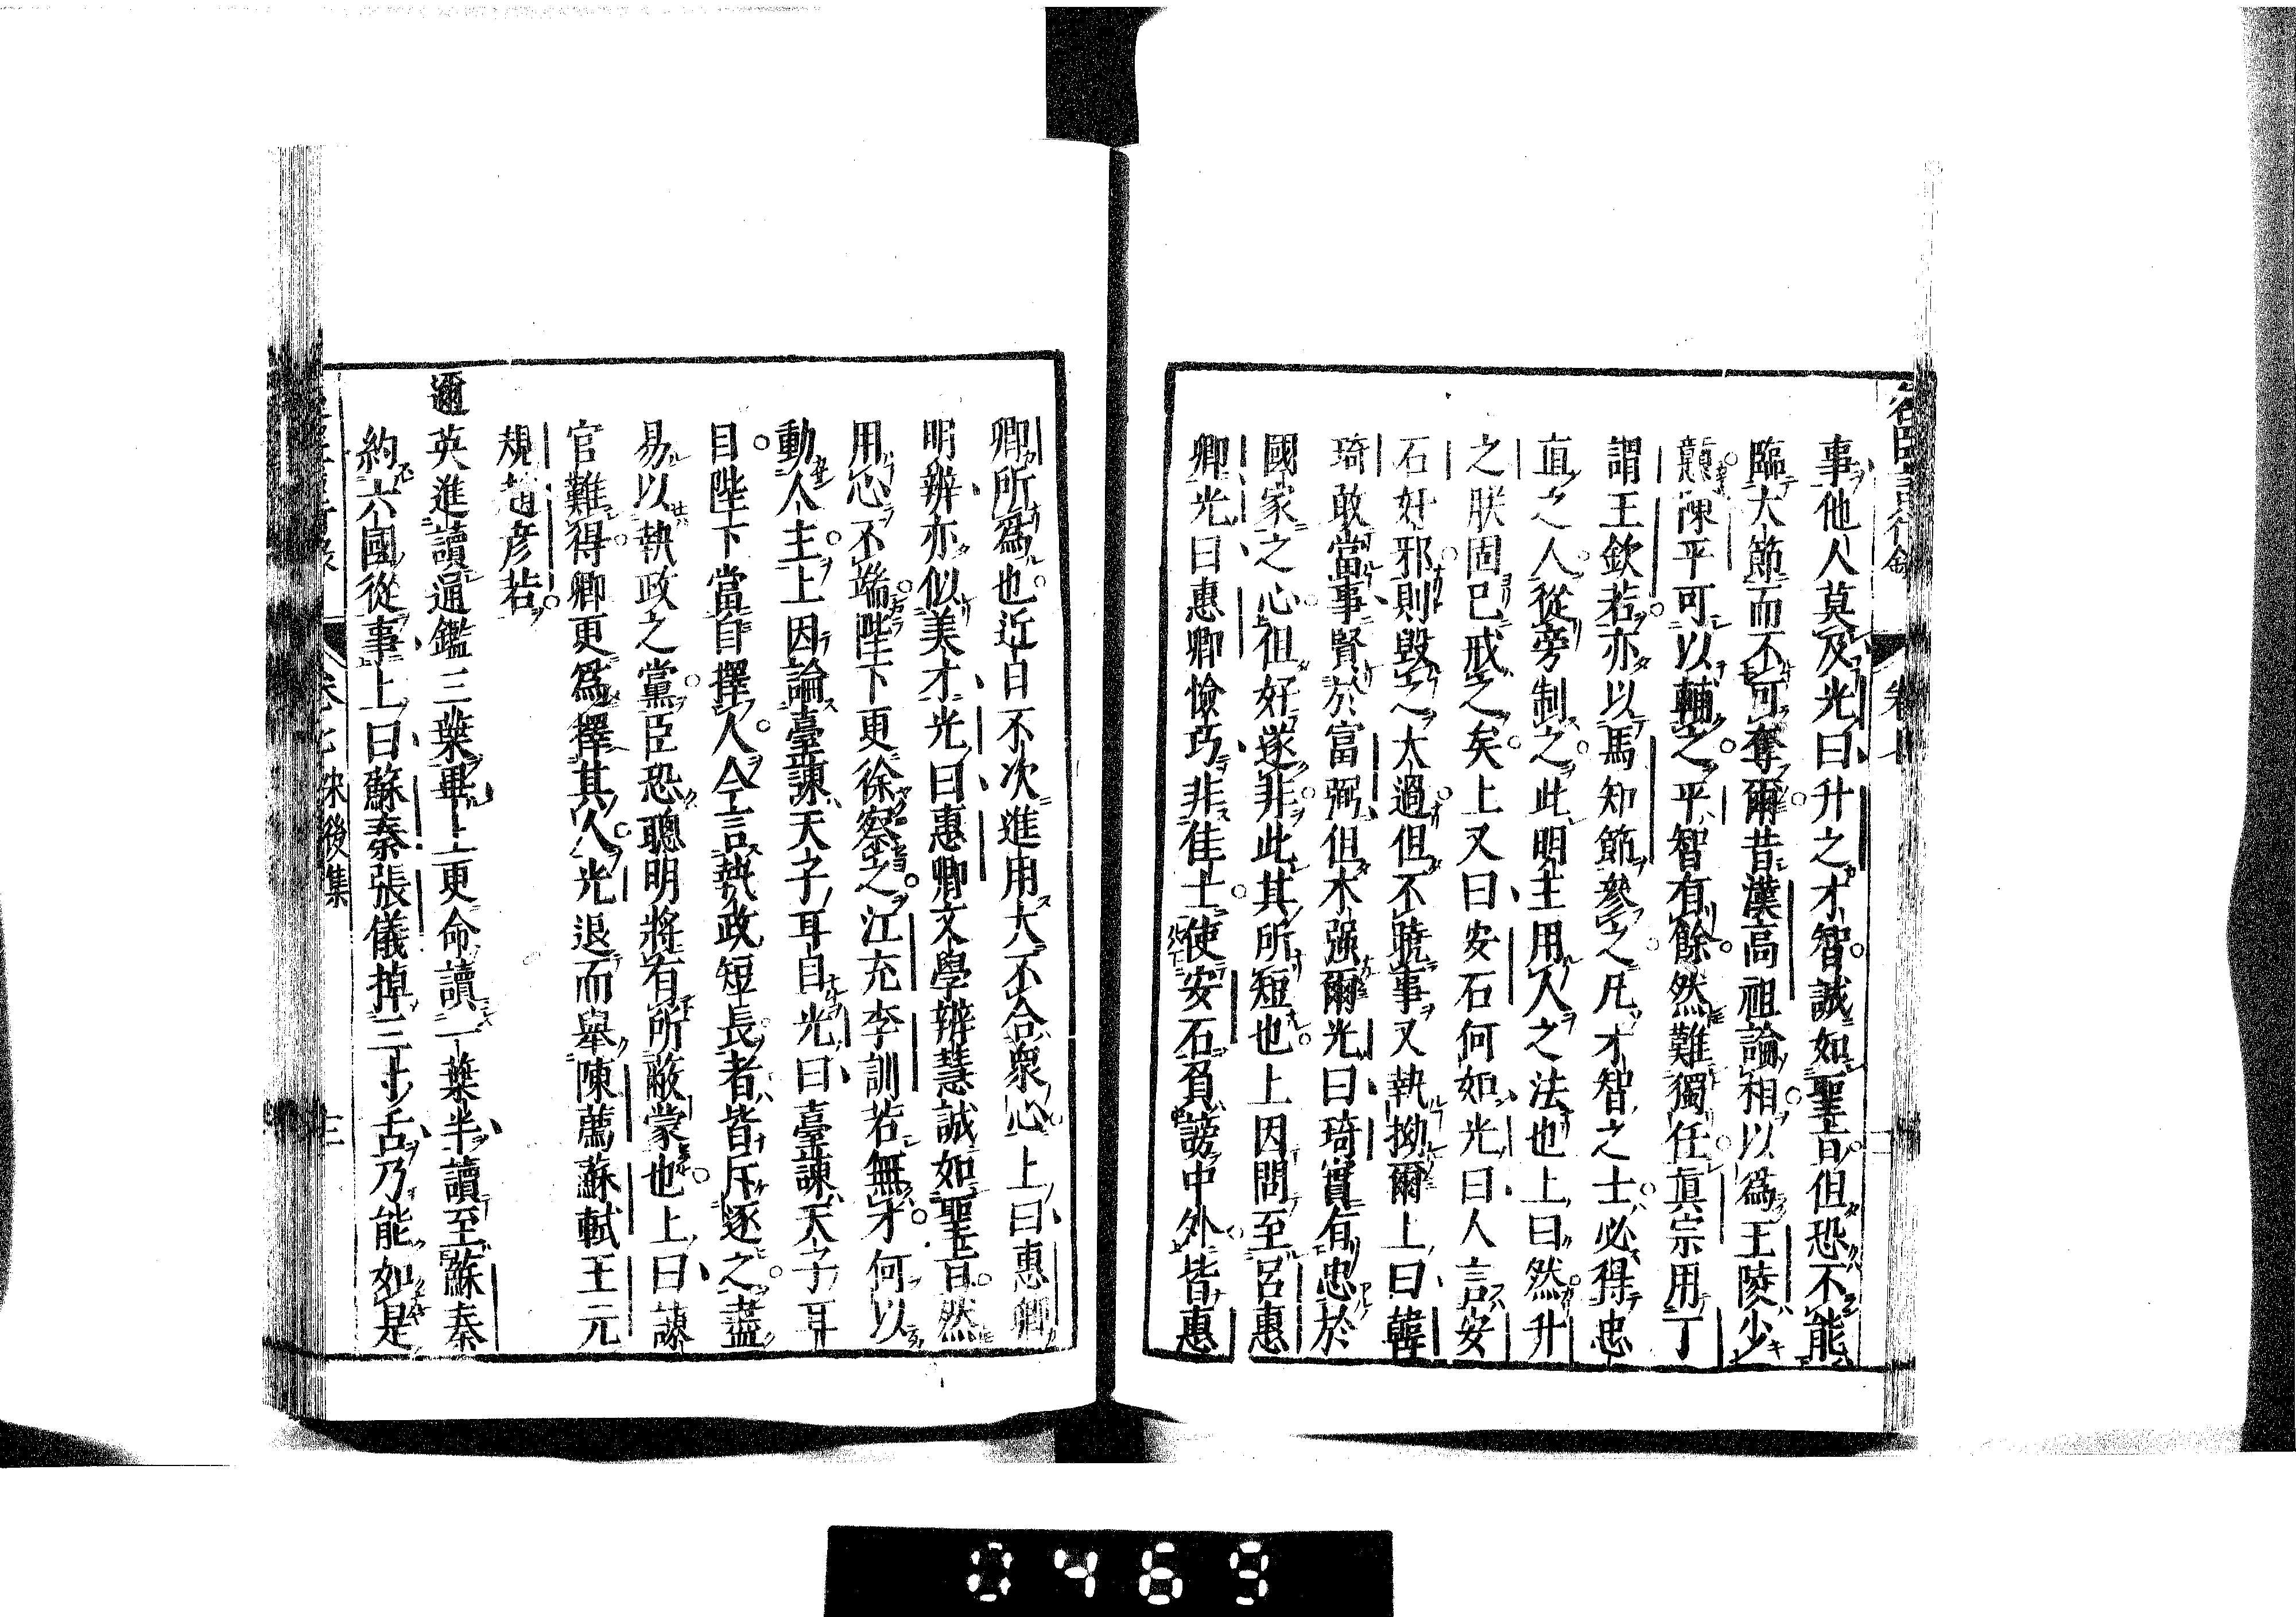 事他人莫及光曰升之才智誠如聖旨但恐不能
臨大節而不可奪爾昔漢高祖論相以為王陵少
戇陳平可以輔之平智有餘然難獨任真宗用丁
謂王欽若亦以馬知節參之凡才智之士必得忠
直之人從旁制之此明主用人之法也上曰然升
之朕固已戒之矣上又曰安石何如光曰人言安
石奸邪則毀之太過但不曉事又執拗爾上曰韓
琦敢當事賢於富弼但木强爾光曰琦實有忠於
國家之心但好遂非此其所短也上因問至呂惠
卿光曰惠卿憸巧非佳士使安石負謗中外皆惠
卿所為也近日不次進用大不合衆心上曰惠卿
明辨亦似美才光曰惠卿文學辨慧誠如聖旨然
用心不端陛下更徐察之江充李訓若無才何以
動人主上因論臺諫天子耳目光曰臺諫天子耳
目陛下當自擇人今言執政短長者皆斥逐之盡
易以執政之黨臣恐聰明將有所蔽蒙也上曰諫
官難得卿更為擇其人光退而舉陳薦蘇軾王元
規趙彥若
邇英進讀通鑑三葉畢上更命讀一葉半讀至蘇秦
約六國從事上曰蘇秦張儀掉三寸舌乃能如是
後集
0469